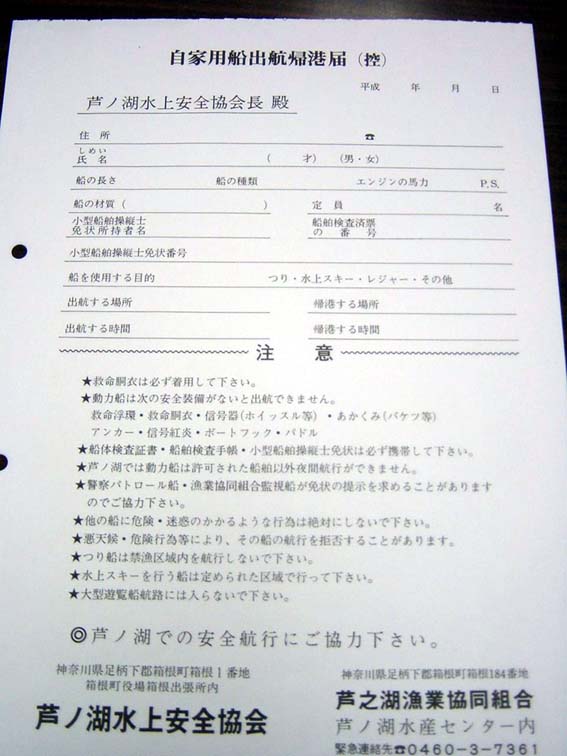 自家用船出航帰港届（控）
平成　年　月　日
芦ノ湖水上安全協会長 殿
住所　☎
しめい
氏名　（　才）　（男・女）
船の長さ　船の種類　エンジンの馬力　P.S.
船の材質（　）　定員　名
小型船舶操縦士　船舶検査済票
免状所持者名　の番号
小型船舶操縦士免状番号
船を使用する目的　つり・水上スキー・レジャー・その他
出航する場所　帰港する場所
出航する時間　帰港する時間
注　意
★救命胴衣は必ず着用して下さい。
★動力船は次の安全装備がないと出航できません。
救命浮環・救命胴衣・信号器(ホイッスル等)・あかくみ(バケツ等)
アンカー・信号紅炎・ボートフック・パドル
★船体検査証書・船舶検査手帳・小型船舶操縦士免状は必ず携帯して下さい。
★芦ノ湖では動力船は許可された船舶以外夜間航行ができません。
★警察パトロール船・漁業協同組合監視船が免状の提示を求めることがあります
のでご協力下さい。
★他の船に危険・迷惑のかかるような行為は絶対にしないで下さい。
★悪天候・危険行為等により、その船の航行を拒否することがあります。
★つり船は禁漁区域内を航行しないで下さい。
★水上スキーを行う船は定められた区域で行って下さい。
★大型遊覧船航路には入らないで下さい。
◎芦ノ湖での安全航行にご協力下さい。
神奈川県足柄下郡箱根町箱根1番地
箱根町役場箱根出張所内
芦ノ湖水上安全協会
神奈川県足柄下郡箱根町箱根184番地
芦之湖漁業協同組合
芦ノ湖水産センター内
緊急連絡先☎0460-3-7361